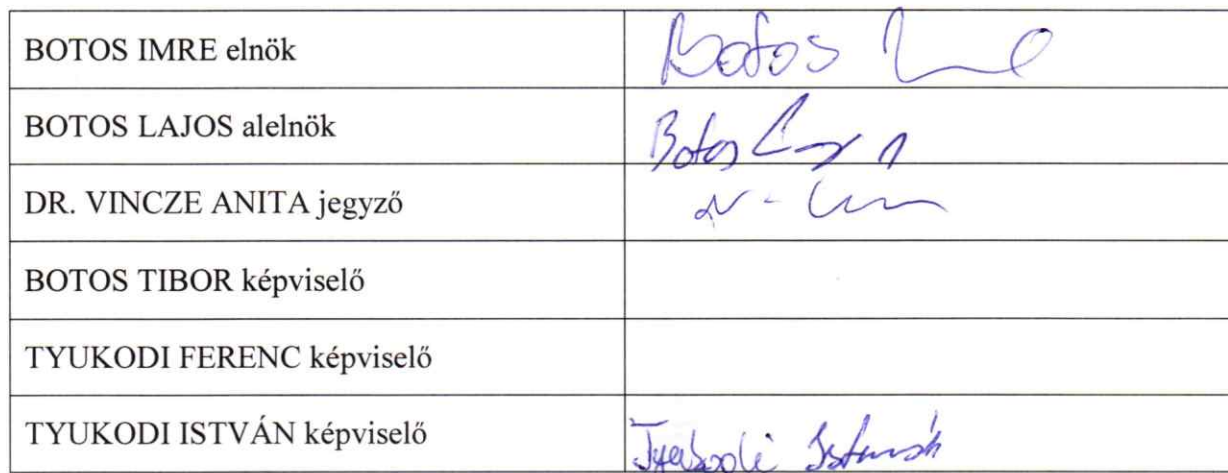 BOTOS IMRE elnök Botos
BOTOS LAJOS alelnök Botos
DR. VINCZE ANITA jegyző
BOTOS TIBOR képviselő
TYUKODI FERENC képviselő
TYUKODI ISTVÁN képviselő Tyukodi István